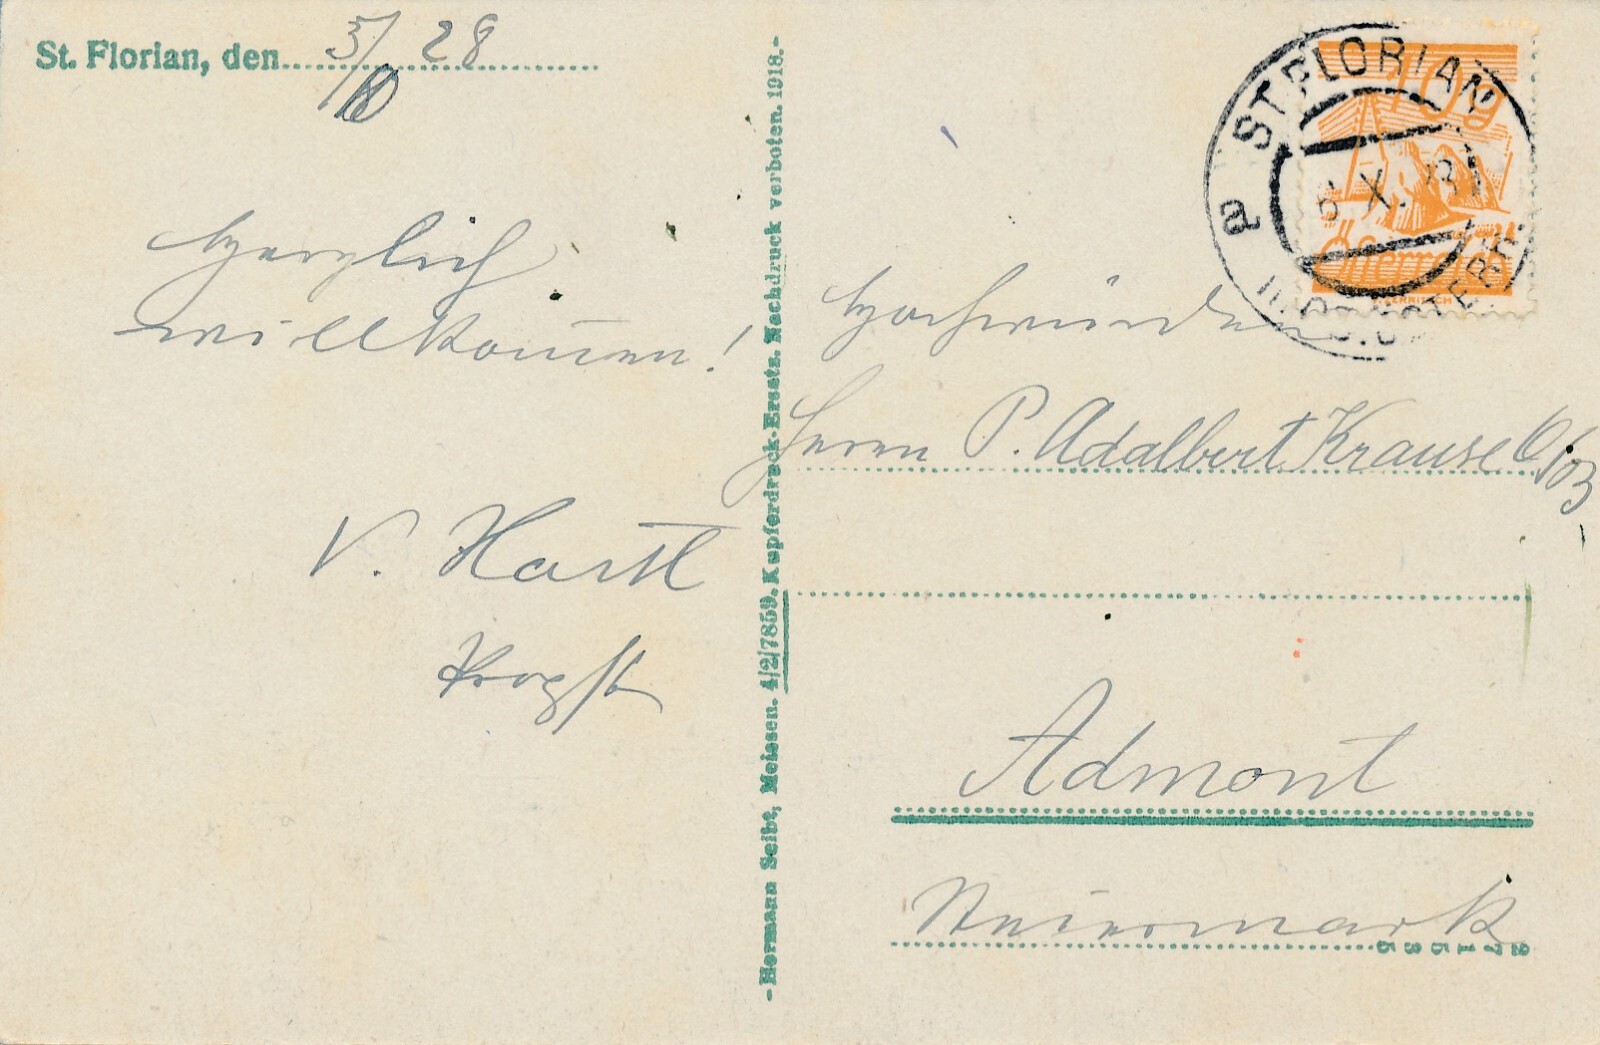 St. Florian, den 5/10 28
Herzlich
willkommen!
V. Hartl
Propst
- Hermann Seibt, Meissen. 4/2/7859. Kupferdruck-Ersatz. Nachdruck verboten. 1918. -
10g
Österreich
ST. FLORIAN
a
X. 28
Hochwürden
Herrn P. Adalbert Krause
Admont
Steiermark